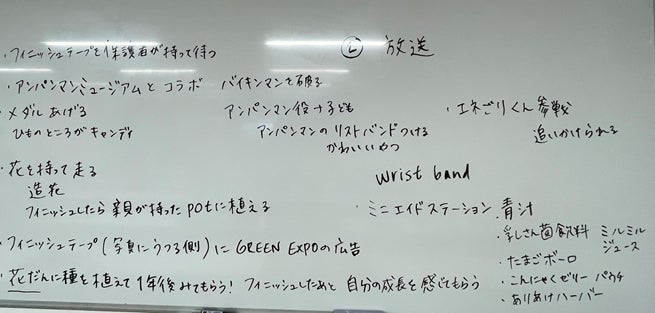 ・フィニッシュテープを保護者が持って待つ
Ⓛ 放送
・アンパンマンミュージアムと コラボ バイキンマンを破る
・メダルあげる
ひものところがキャンディ
アンパンマン役→子ども
アンパンマンの リストバンドつける
かわいいやつ
・エネごりくん参戦
追いかけられる
・花を持って走る
造花
フィニッシュしたら 親が持ったpotに植える
wrist band
・ミニエイドステーション
・青汁
・乳さん菌飲料 ミルミル
ジュース
・たまごボーロ
・こんにゃくゼリー パウチ
・ありあけハーバー
・フィニッシュテープ(写真にうつる側)に GREEN EXPOの広告
・花だんに種を植えて 1年後みてもらう! フィニッシュしたあと 自分の成長を感じてもらう